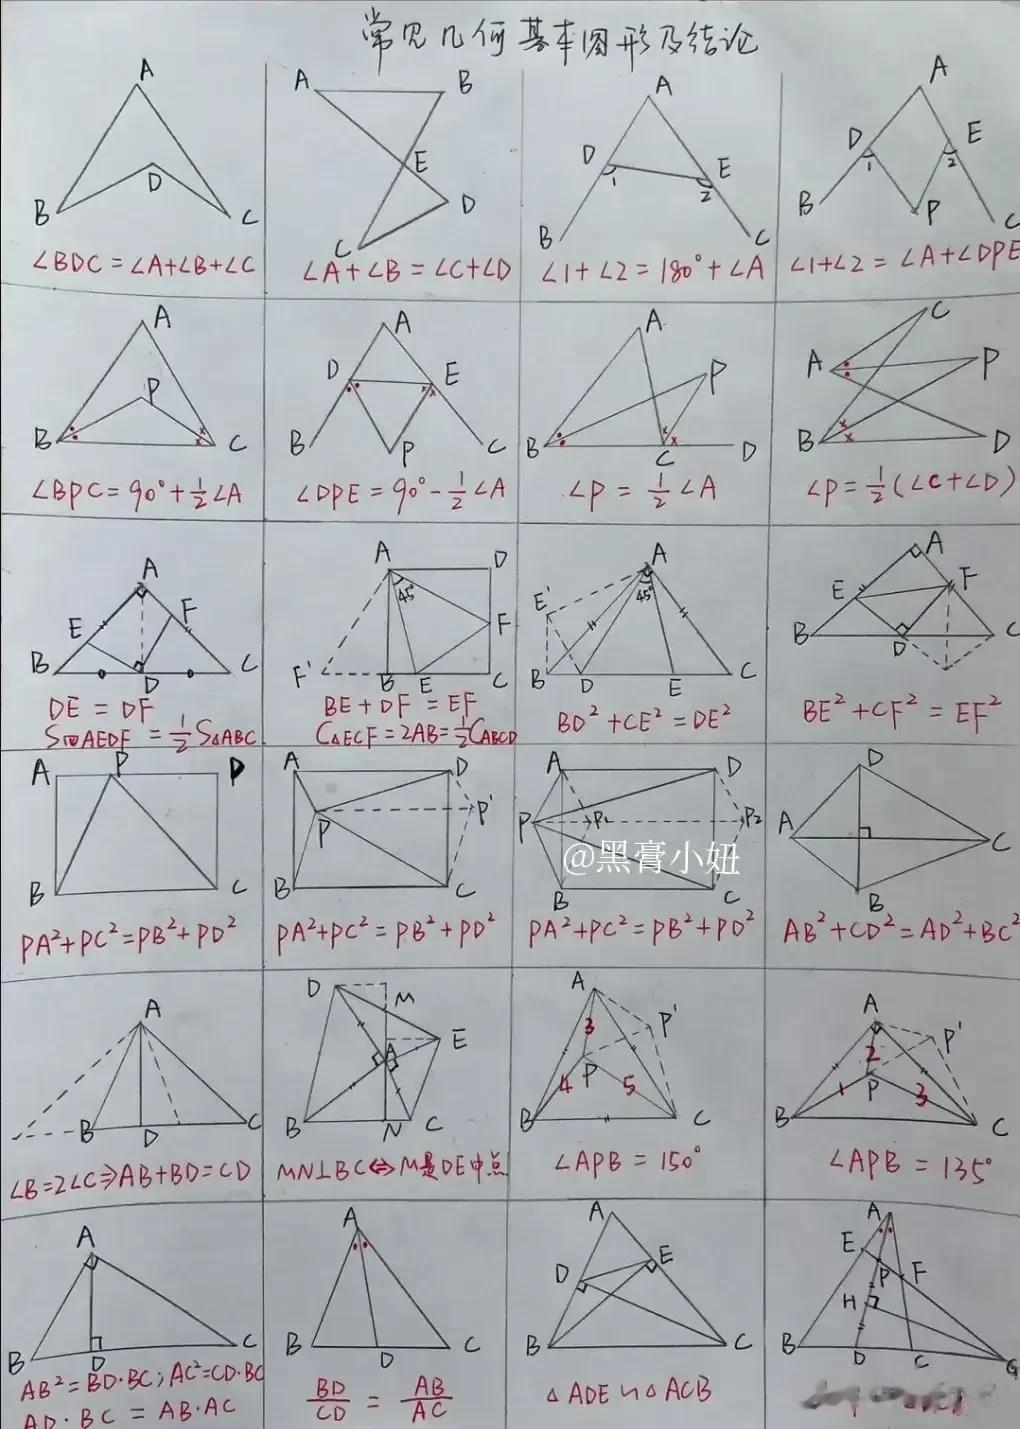 常见几何基本图形及结论
A
D
B
C
∠BDC=∠A+∠B+∠C
A
B
E
D
C
∠A+∠B=∠C+∠D
A
D
E
1
2
B
C
∠1+∠2=180°+∠A
A
D
E
1
2
B
P
C
∠1+∠2=∠A+∠DPE
A
P
B
C
∠BPC=90°+½∠A
A
D
E
B
P
C
∠DPE=90°-½∠A
A
P
B
C
D
∠P=½∠A
C
A
P
B
D
∠P=½(∠C+∠D)
A
E
F
B
D
C
DE=DF
S四AEDF=½S△ABC
A
D
45°
F
F'
B
E
C
BE+DF=EF
C△ECF=2AB=½CABCD
A
E'
45°
B
D
E
C
BD²+CE²=DE²
A
E
F
B
D
C
BE²+CF²=EF²
A
P
D
B
C
PA²+PC²=PB²+PD²
A
D
P
P'
B
C
PA²+PC²=PB²+PD²
A
D
P
P₁
P₂
@黑膏小妞
B
C
PA²+PC²=PB²+PD²
D
A
C
B
AB²+CD²=AD²+BC²
A
B
D
C
∠B=2∠C⇒AB+BD=CD
D
M
A
E
B
N
C
MN⊥BC⇔M是DE中点
A
3
P'
4
P
5
B
C
∠APB=150°
A
2
P'
1
P
3
B
C
∠APB=135°
A
B
D
C
AB²=BD·BC;AC²=CD·BC
AD·BC=AB·AC
A
B
D
C
BD/CD=AB/AC
A
D
E
B
C
△ADE∽△ACB
A
E
P
F
H
B
D
C
G